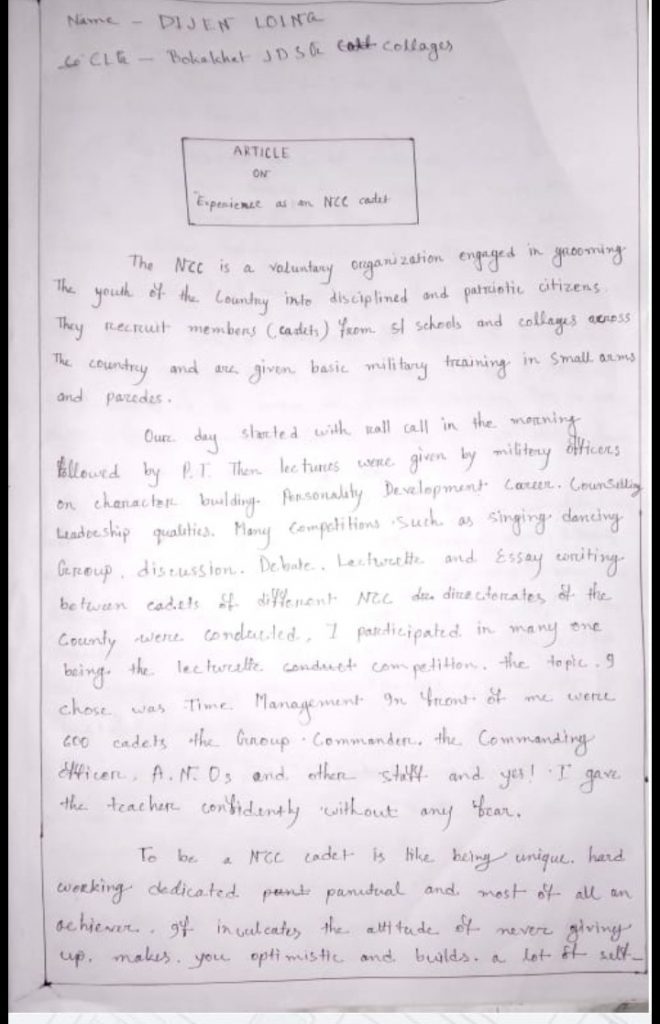 Name - DIJEN LOING
CLG - Bokakhat JDSG Collages
ARTICLE
ON
"Expenience as an NCC cadet
The NCC is a voluntary organization engaged in grooming
The youth of the Country into disciplined and patriotic citizens.
They recruit members (cadets) from schools and collages across
The country and are given basic military training in small arms
and paredes.
Our day started with roll call in the morning
followed by P.T. Then lectures were given by military officers
on character building. Personality Development Career. Counselling
Leadership qualities. Many Competitions Such as singing dancing
Group. discussion. Debate. Lecturette and Essay writing
between cadets of different NCC directorates of the
County were conducted, I participated in many one
being. the lecturette conduct competition. the topic. I
chose was Time Management In front of me were
600 cadets the Group Commander. the Commanding
Officer. A.N.Os and other staff and yes! I gave
the teacher confidently without any fear.
To be a NCC cadet is like being unique. hard
working dedicated panutual and most of all an
achiever. It inculcates the attitude of never giving
up. makes. you optimistic and builds. a lot of self-